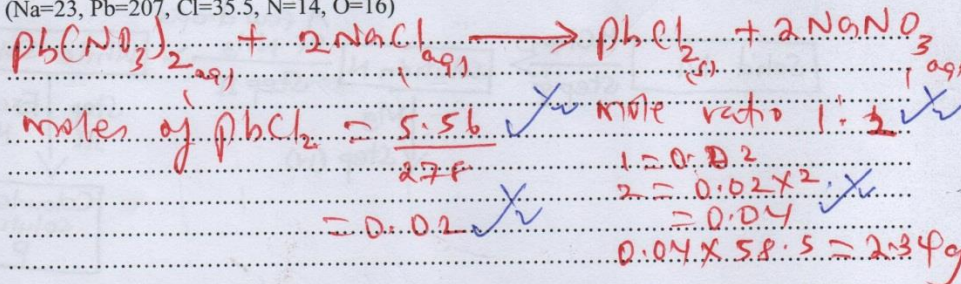 (Na=23, Pb=207, Cl=35.5, N=14, O=16)
Pb(NO₃)₂(aq) + 2NaCl(aq) → PbCl₂(s) + 2NaNO₃(aq)
moles of PbCl₂ = 5.56/278 ✓½ mole ratio 1:2 ✓½
1 = 0.02
= 0.02 ✓½ 2 = 0.02×2 ✓½
= 0.04
0.04 × 58.5 = 2.34g